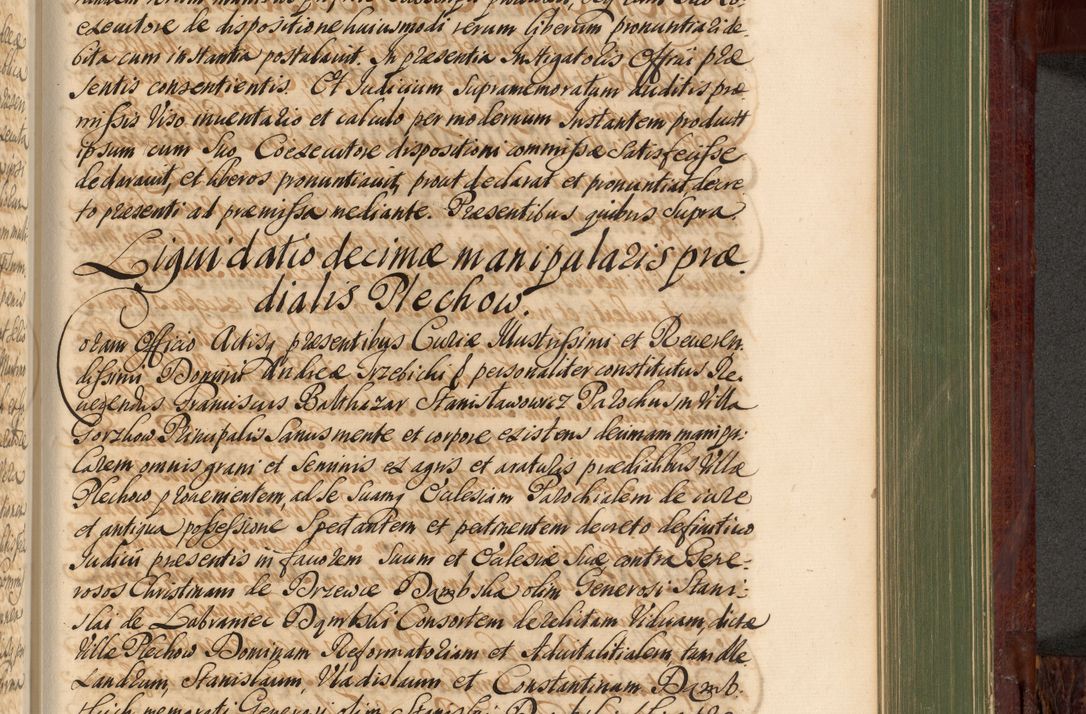 execuitore de dispositione huiusmodi verum liberum pronuntiari de-
bita cum instantia postalauit. In præsentia Instigatoris Officii præ
sentis consentientis. Et Iudicium Supramemoratum auditis præ
missis Viso inuentario et calculo per modernum Instantem producit
ipsum cum Suo Coexecuitore dispositioni commissæ Satisfecisse
declarauit, et liberos pronuntiauit, prout declarat et pronuntiat, decre
to præsenti ad præmissa mediante. Præsentibus quibus Supra
Liquidatio decimæ manipularis præ.
dialis Plechow.
Coram Officio Actisq præsentibus Curiæ Illustrissimi et Reueren.
dissimi Domini Andreæ Trzebicki personaliter constitutus Re.
uerendus Franciscus Balthazar Stanisławowicz Parochus in Villa
Gorzkow Principalis Sanus mente et corpore existens decimam manipu.
larem omnis grani et Seminis ex agris et araturis prædialibus Villæ
Plechow prouenientem, ad se Suamq Ecclesiam Parochialem de iure
et antiqua possessione Spectantem et pertinentem decreto definitiuo
Iudicii præsentis in fauorem Suum et Ecclesiæ Suæ contra Gene-
rosos Christinam de Brzezie Dąmbska olim Generosi Stani-
slai de Lubraniec Dąmbski Consortem derelictam Viduam, dictæ
Villæ Plechow Dominam Reformatoriam et Aduitalitialem, tum Ale
xandrum, Stanislaum, Vladislaum et Constantinum Dąmb.
skich memorati Generosi olim Stanislai